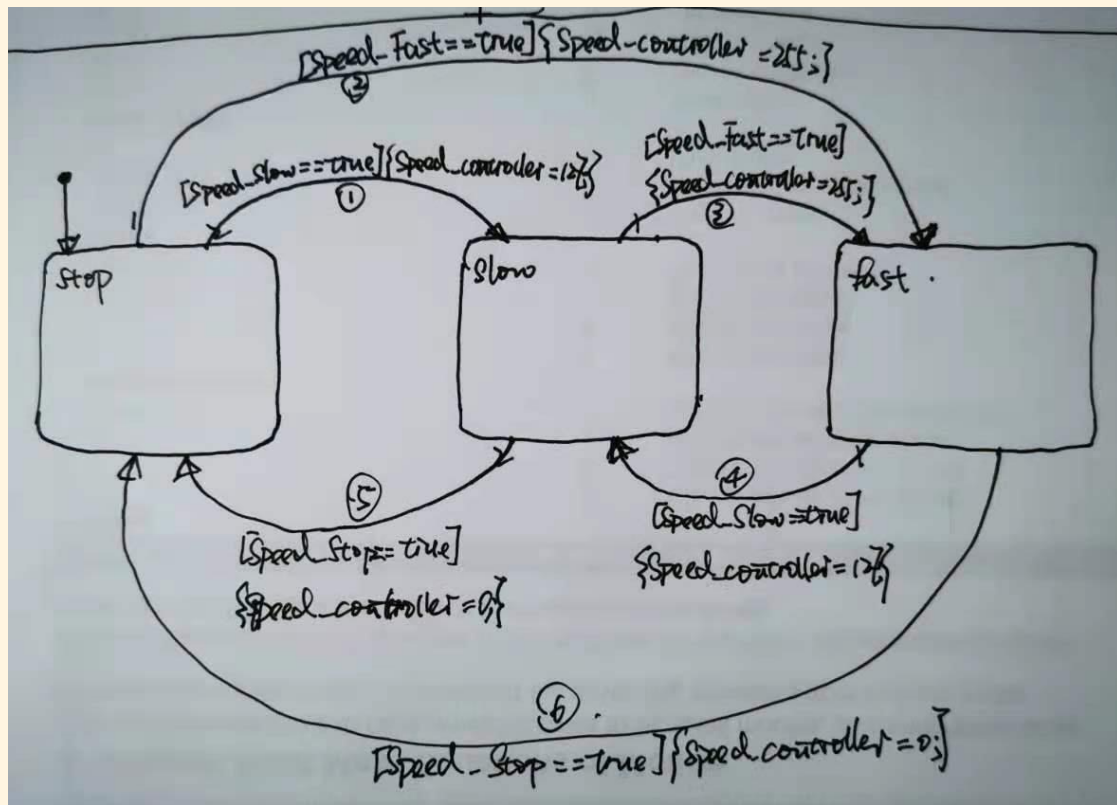 [Speed_Fast==true]{Speed-controller=255;}
②
[Speed_Slow==true]{Speed_controller=127;}
①
[Speed_Fast==true]
{Speed_controller=255;}
③
1
2
1
stop
Slow
fast
2
1
⑤
④
[Speed_Stop==true]
{Speed_controller=0;}
[Speed_Slow==true]
{Speed_controller=127;}
⑥
[Speed_Stop==true]{Speed_controller=0;}